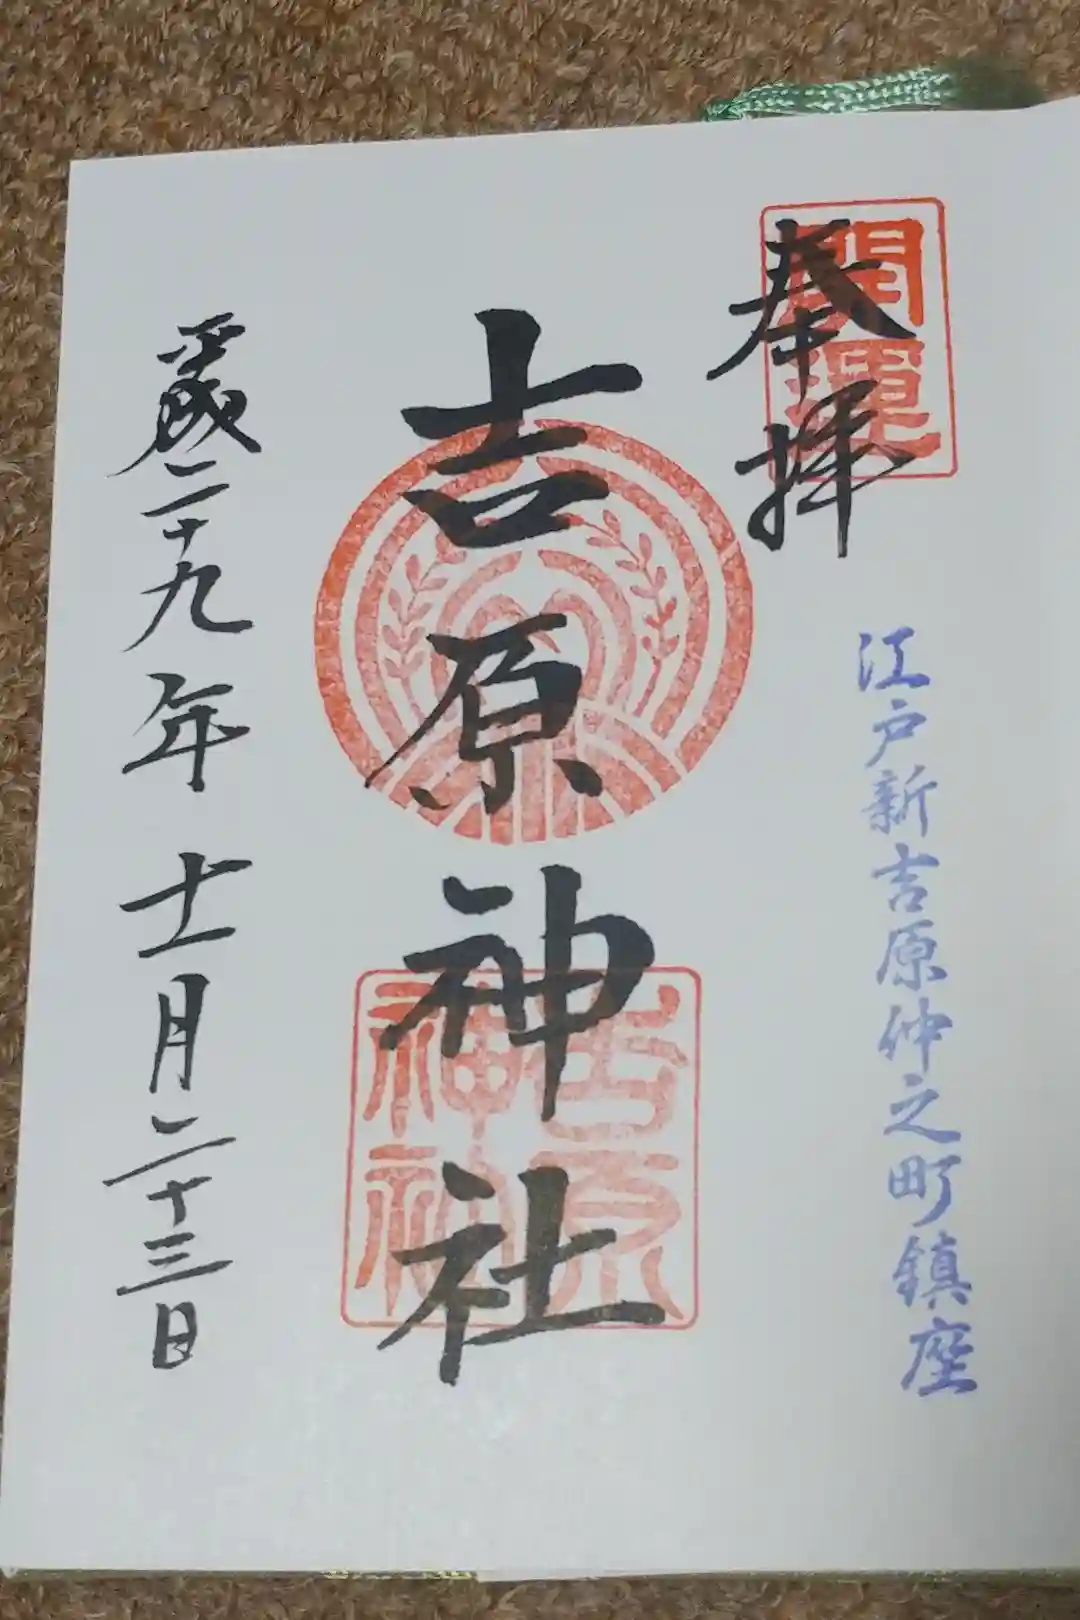 奉拝
開運
江戸新吉原仲之町鎮座
吉原神社
吉原
神社
平成二十九年十一月二十三日